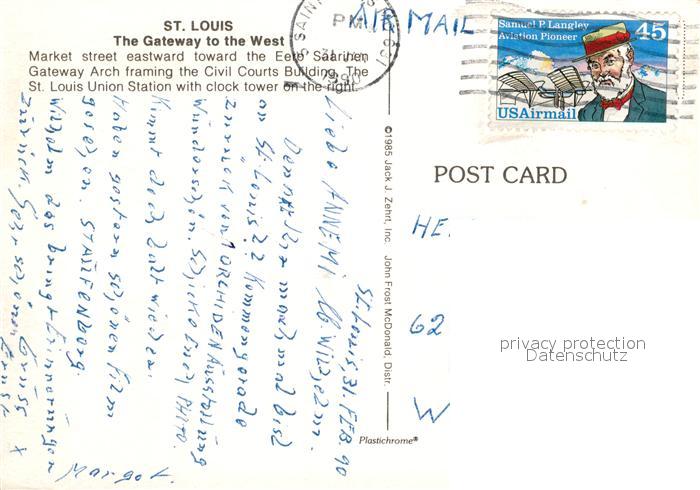 ST. LOUIS
The Gateway to the West
Market street eastward toward the Eero Saarinen
Gateway Arch framing the Civil Courts Building. The
St. Louis Union Station with clock tower on the right.
PM
1990
AIR MAIL
Samuel P. Langley
Aviation Pioneer
45
USAirmail
POST CARD
©1985 Jack J. Zehrt, Inc. John Frost McDonald, Distr.
Plastichrome®
St. Louis, 31. FEB. 90
Liebe ANNEMI Wilhelm.
Denkt Ihr manchmal
an St. Louis?? Kommen gerade
Zurück von ORCHIDEN Ausstellung
Wunderschön. Schicke Euch PHOTO.
Kommt doch bald wieder.
Haben gestern schönen Film
gesehen. STAUFENBERG.
Wilhelm das bringt Erinnerungen
zurück. Sehr schönen Gruss
Margot.
HE
62
W
privacy protection
Datenschutz